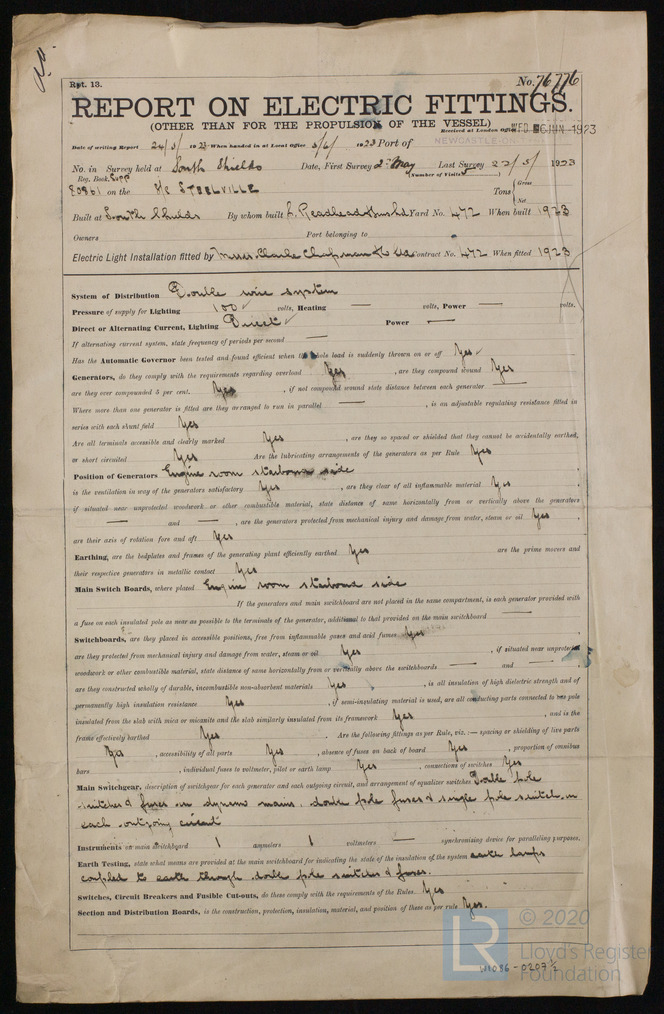 Rpt. 13.
No. 76776
REPORT ON ELECTRIC FITTINGS.
(OTHER THAN FOR THE PROPULSION OF THE VESSEL)
Received at London Office WED. 6 JUN 1923
Date of writing Report 24/5/1923 When handed in at Local Office 5/6/1923 Port of NEWCASTLE-ON-TYNE
No. in Survey held at South Shields Date, First Survey 2nd May Last Survey 22/5/1923
Reg. Book. Supp (Number of Visits 5)
80861 on the STEELVILLE Tons { Gross
Net
Built at South Shields By whom built J. Readhead & Sons Ld Yard No. 472 When built 1923
Owners Port belonging to
Electric Light Installation fitted by Messrs. Clarke Chapman & Co Ld Contract No. 472 When fitted 1923
System of Distribution Double wire system
Pressure of supply for Lighting 100 volts, Heating — volts, Power — volts.
Direct or Alternating Current, Lighting Direct Power —
If alternating current system, state frequency of periods per second —
Has the Automatic Governor been tested and found efficient when the whole load is suddenly thrown on or off Yes
Generators, do they comply with the requirements regarding overload Yes, are they compound wound Yes
are they over compounded 5 per cent. Yes, if not compound wound state distance between each generator —
Where more than one generator is fitted are they arranged to run in parallel —, is an adjustable regulating resistance fitted in
series with each shunt field Yes
Are all terminals accessible and clearly marked Yes, are they so spaced or shielded that they cannot be accidentally earthed,
or short circuited Yes Are the lubricating arrangements of the generators as per Rule Yes
Position of Generators Engine room starboard side
is the ventilation in way of the generators satisfactory Yes, are they clear of all inflammable material Yes
if situated near unprotected woodwork or other combustible material, state distance of same horizontally from or vertically above the generators
— and —, are the generators protected from mechanical injury and damage from water, steam or oil Yes,
are their axis of rotation fore and aft Yes
Earthing, are the bedplates and frames of the generating plant efficiently earthed Yes are the prime movers and
their respective generators in metallic contact Yes
Main Switch Boards, where placed Engine room starboard side
If the generators and main switchboard are not placed in the same compartment, is each generator provided with
a fuse on each insulated pole as near as possible to the terminals of the generator, additional to that provided on the main switchboard —
Switchboards, are they placed in accessible positions, free from inflammable gases and acid fumes Yes,
are they protected from mechanical injury and damage from water, steam or oil Yes, if situated near unprotected
woodwork or other combustible material, state distance of same horizontally from or vertically above the switchboards — and —
are they constructed wholly of durable, incombustible non-absorbent materials Yes, is all insulation of high dielectric strength and of
permanently high insulation resistance Yes, if semi-insulating material is used, are all conducting parts connected to one pole
insulated from the slab with mica or micanite and the slab similarly insulated from its framework Yes, and is the
frame effectively earthed Yes. Are the following fittings as per Rule, viz.:— spacing or shielding of live parts
Yes, accessibility of all parts Yes, absence of fuses on back of board Yes, proportion of omnibus
bars, individual fuses to voltmeter, pilot or earth lamp Yes, connections of switches Yes
Main Switchgear, description of switchgear for each generator and each outgoing circuit, and arrangement of equalizer switches Double pole
switches & fuses on dynamo mains, double pole fuses & single pole switch on
each outgoing circuit
Instruments on main switchboard 1 ammeters 1 voltmeters — synchronizing device for paralleling purposes.
Earth Testing, state what means are provided at the main switchboard for indicating the state of the insulation of the system earth lamps
coupled to earth through double pole switches & fuses.
Switches, Circuit Breakers and Fusible Cut-outs, do these comply with the requirements of the Rules. Yes
Section and Distribution Boards, is the construction, protection, insulation, material, and position of these as per rule Yes.
LR © 2020
Lloyd's Register
Foundation
W1036-0207 1/2